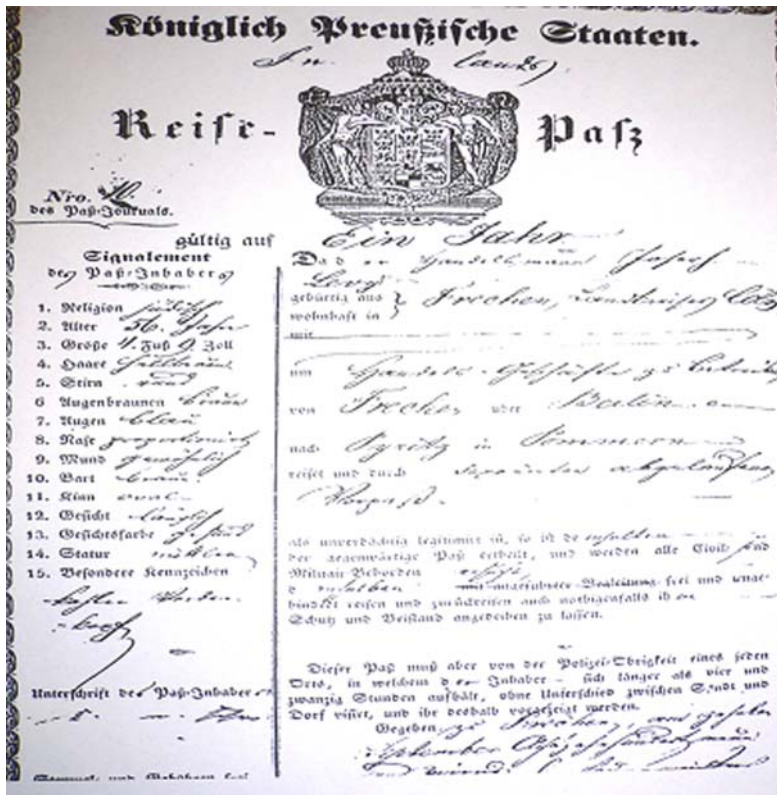 Königlich Preußische Staaten.
In landes
Reise-Paß
Nro.
des Paß-Journals.
gültig auf Ein Jahr
Signalement
des Paß-Inhabers
1. Religion jüdisch
2. Alter 56. Jahr
3. Größe 4. Fuß 9 Zoll
4. Haare
5. Stirn rund
6 Augenbraunen braun
7. Augen blau
8. Nase proportionirt
9. Mund gewöhnlich
10. Bart braun.
11. Kinn oval
12. Gesicht länglich
13. Gesichtsfarbe gesund
14. Statur mittler
15. Besondere Kennzeichen
Unterschrift des Paß-Inhabers
Da d er Handelsmann Joseph
Levy
gebürtig aus } Frechen, Landkreises
wohnhaft in
mit
um Handels-Geschäfte zu
von Frechen über Berlin
nach Pyritz in Pommern
reiset und durch abgelaufenen
Vorpaß.
als unverdächtig legitimirt ist, so ist demselben
der gegenwärtige Paß ertheilt, und werden alle Civil- und
Militair-Behörden ersucht,
d enselben mit ungeführer Begleitung frei und unge-
hindert reisen und zurückreisen auch nöthigenfalls ihm
Schutz und Beistand angedeihen zu lassen.
Dieser Paß muß aber von der Polizei-Obrigkeit eines jeden
Orts, in welchem d er Inhaber sich länger als vier und
zwanzig Stunden aufhält, ohne Unterschied zwischen Stadt und
Dorf visirt, und ihr deshalb vorgezeigt werden.
Gegeben zu Frechen, am
September